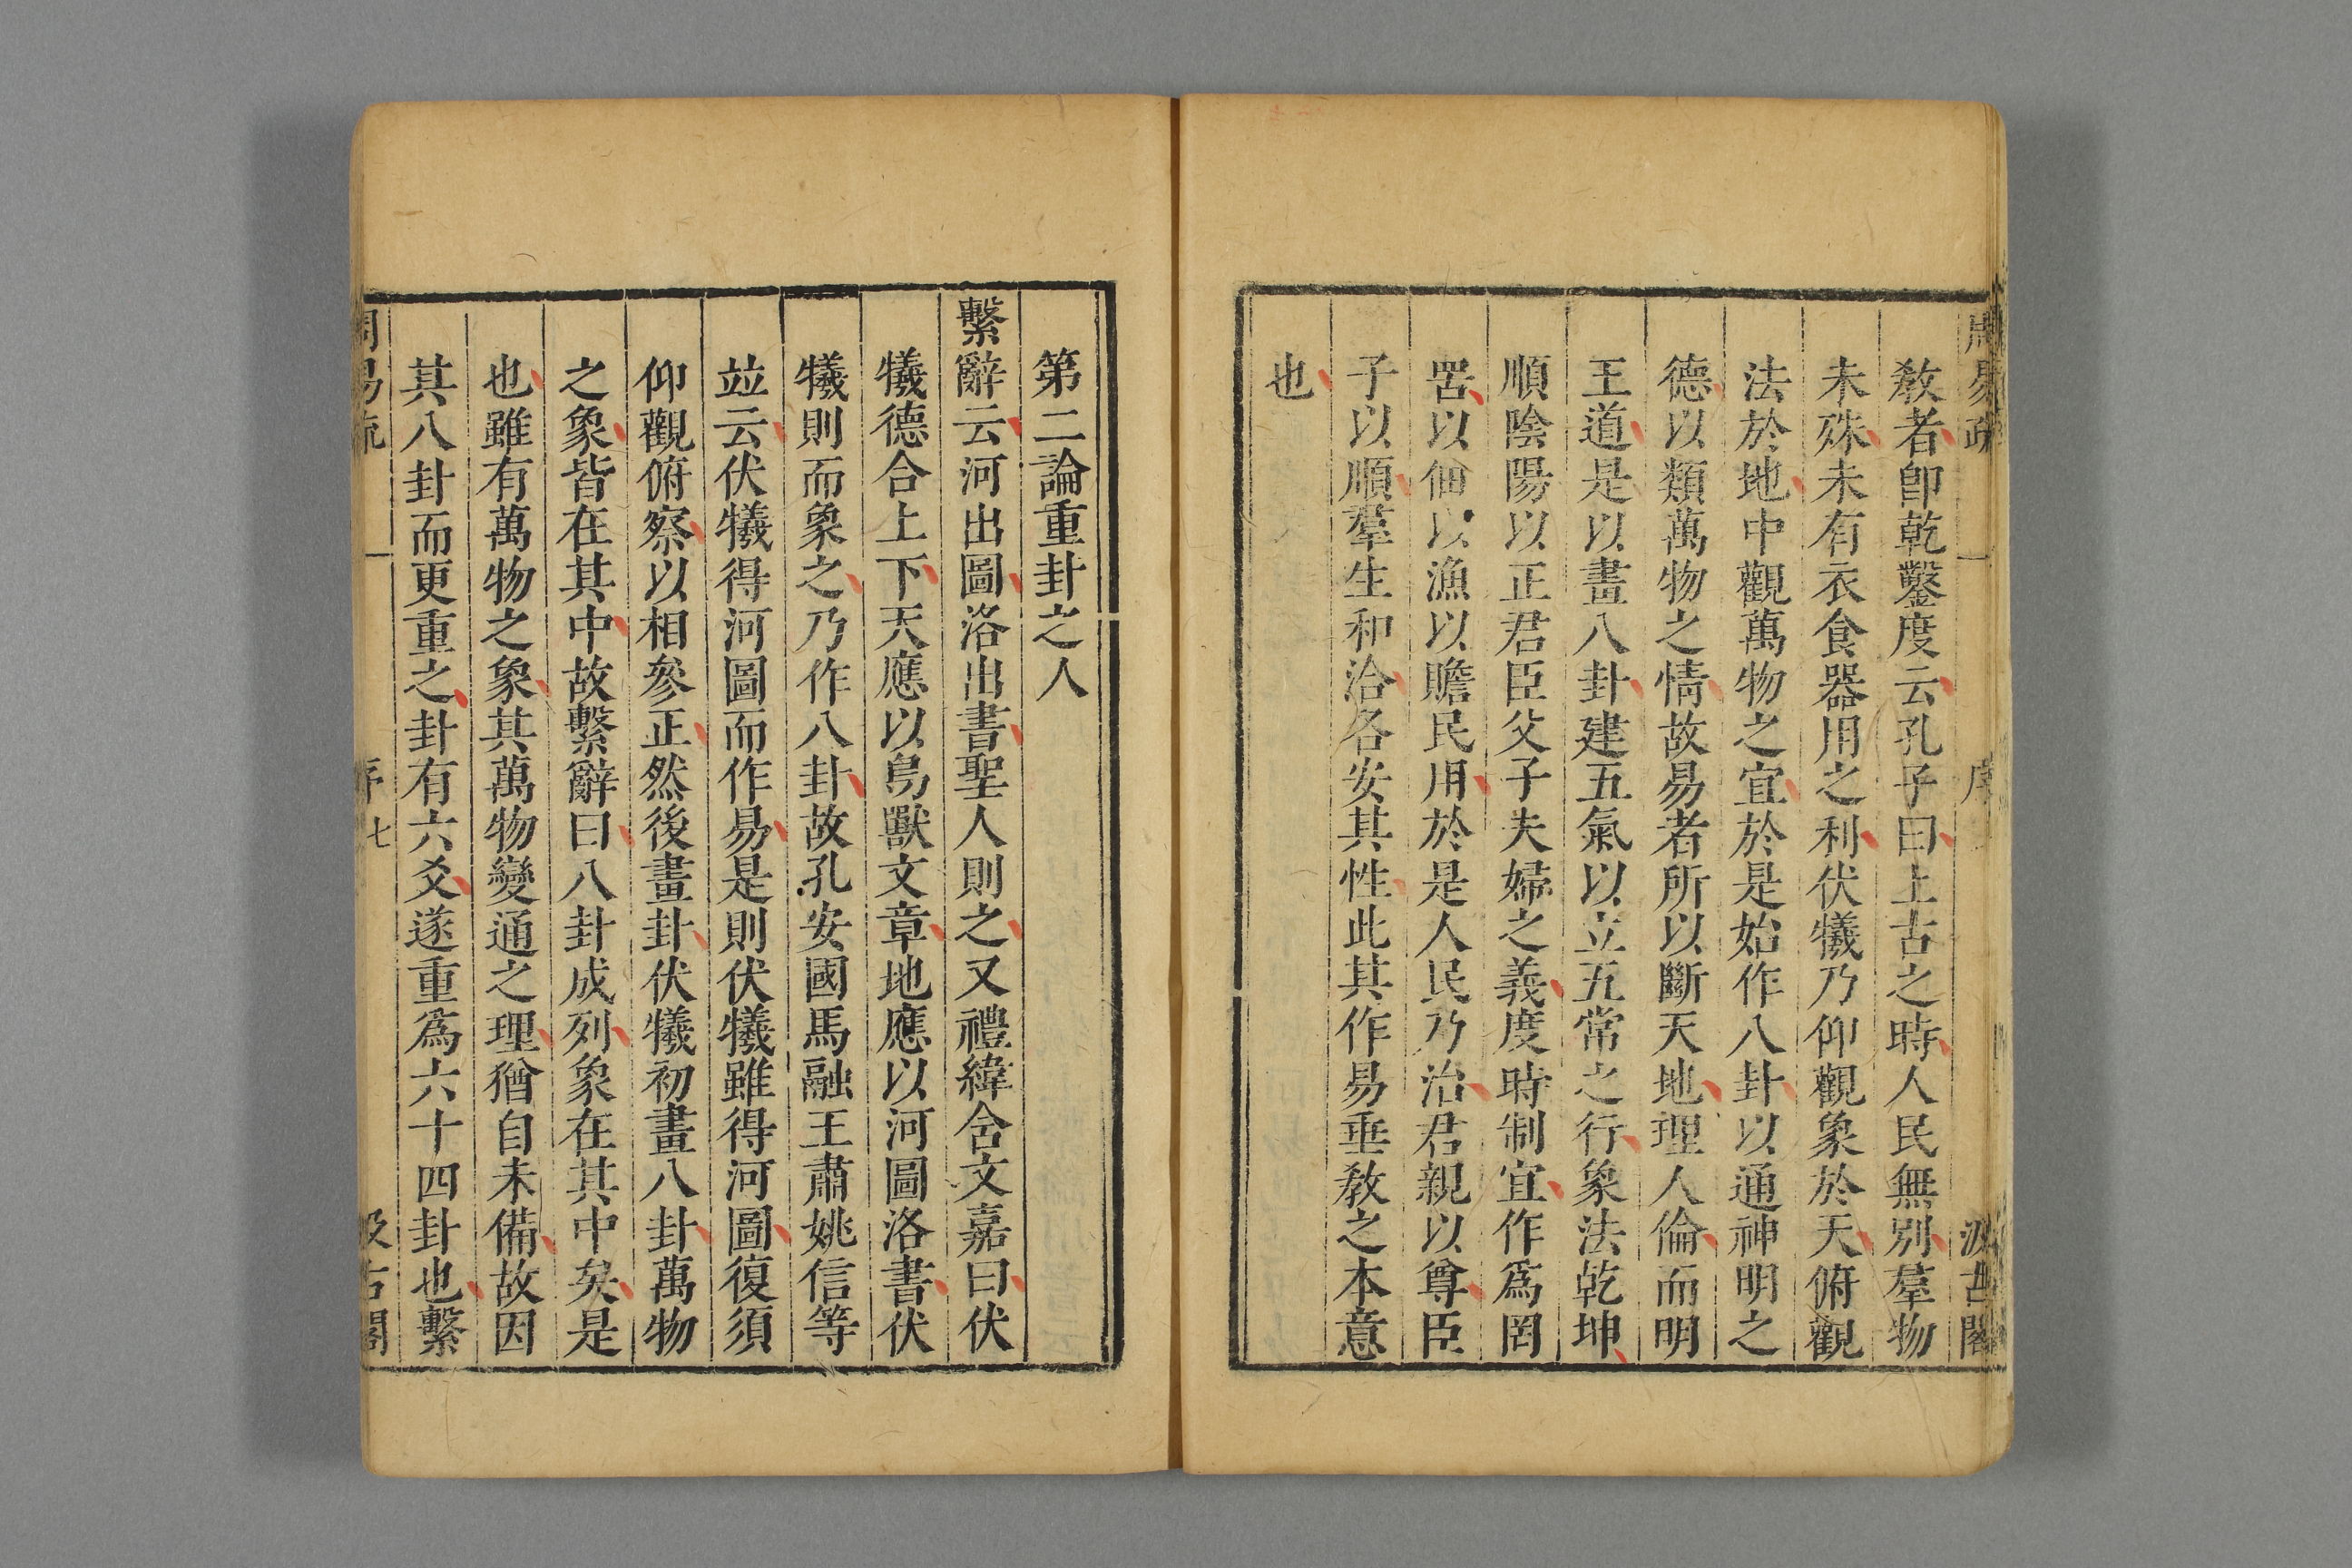 周易疏 一 序 汲古閣
教者卽乾鑿度云孔子曰上古之時人民無別羣物
未殊未有衣食器用之利伏犧乃仰觀象於天俯觀
法於地中觀萬物之宜於是始作八卦以通神明之
德以類萬物之情故易者所以斷天地理人倫而明
王道是以畫八卦建五氣以立五常之行象法乾坤
順陰陽以正君臣父子夫婦之義度時制宜作爲罔
罟以佃以漁以贍民用於是人民乃治君親以尊臣
子以順羣生和洽各安其性此其作易垂教之本意
也
第二論重卦之人
繫辭云河出圖洛出書聖人則之又禮緯含文嘉曰伏
犧德合上下天應以鳥獸文章地應以河圖洛書伏
犧則而象之乃作八卦故孔安國馬融王肅姚信等
竝云伏犧得河圖而作易是則伏犧雖得河圖復須
仰觀俯察以相參正然後畫卦伏犧初畫八卦萬物
之象皆在其中故繫辭曰八卦成列象在其中矣是
也雖有萬物之象其萬物變通之理猶自未備故因
其八卦而更重之卦有六爻遂重爲六十四卦也繫
周易疏 一 序 七 汲古閣